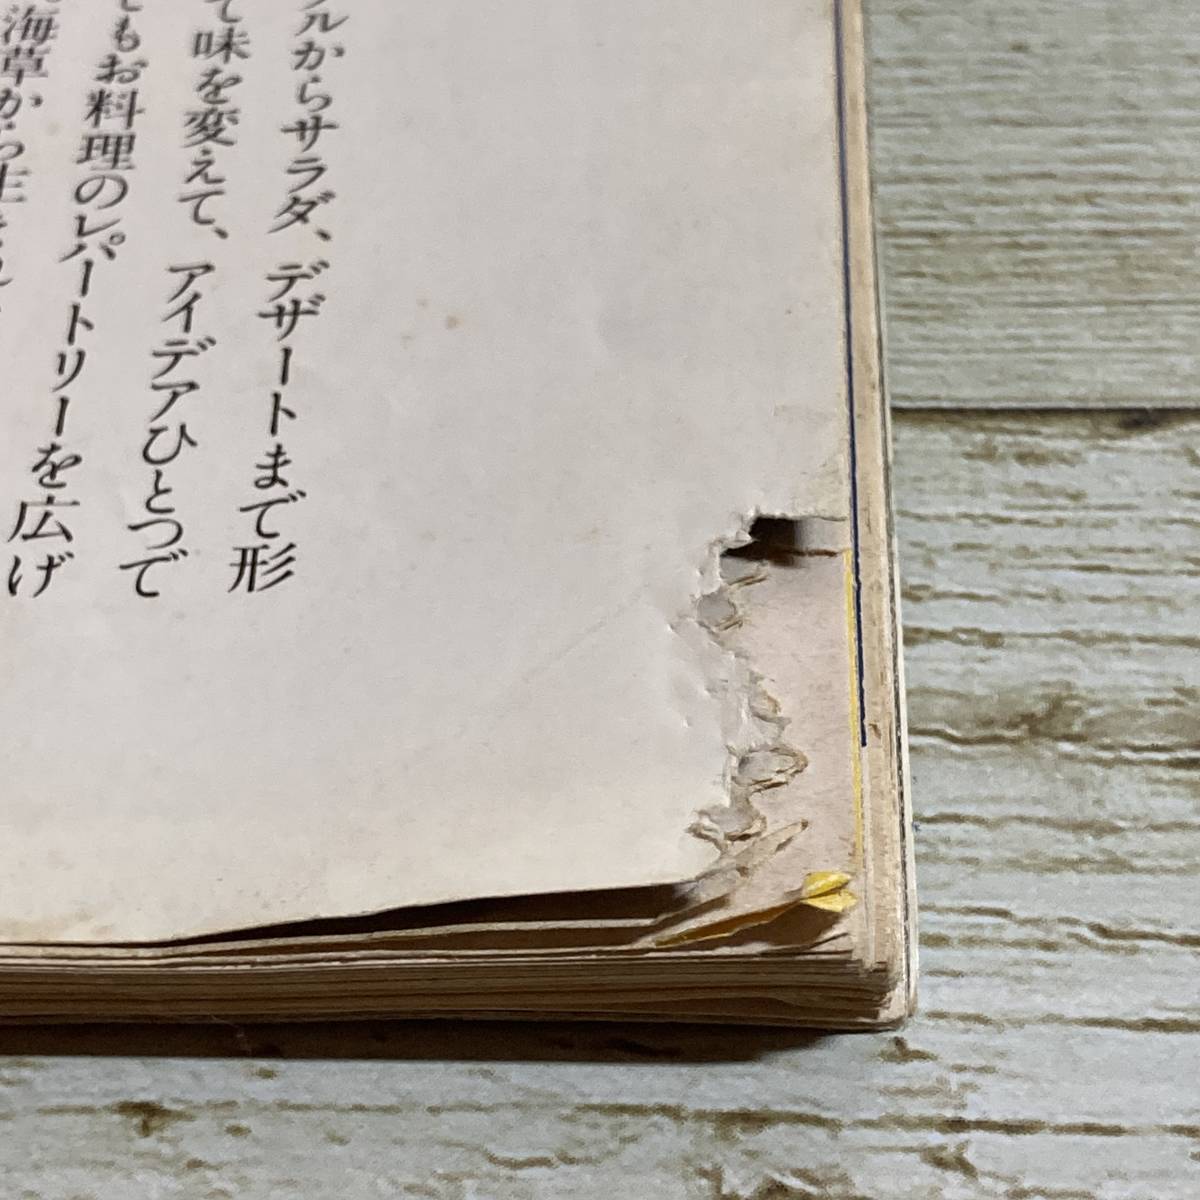 ルからサラダ、デザートまで形
て味を変えて、アイデアひとつで
もお料理のレパートリーを広げ
海草から生